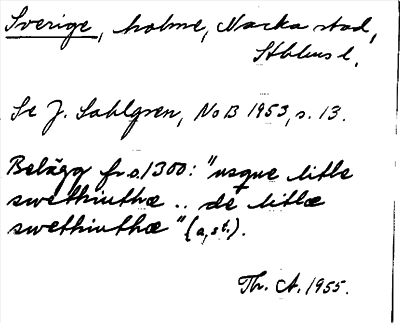 Sverige, holme, Nacka stad,
Sthlms l.
Se J. Sahlgren, NoB 1953, s. 13.
Belägg fr o. 1300: "usque litle
swethiuthæ .. de litlæ
swethiuthæ" (a. st.).
Th. A. 1955.